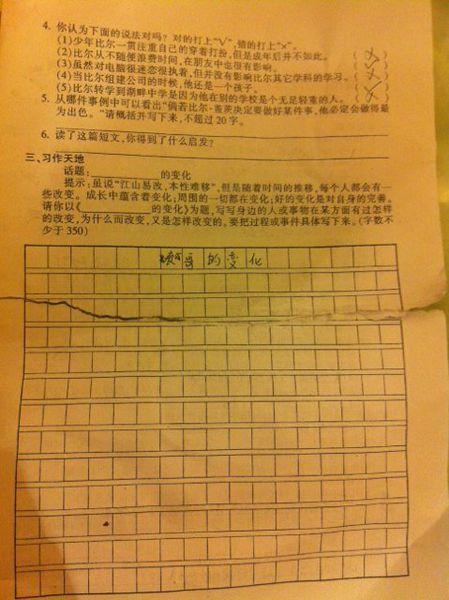 4. 你认为下面的说法对吗？对的打上"√",错的打上"×"。
(1)少年比尔一贯注重自己的穿着打扮,但是成年后并不如此。( × )
(2)比尔从不随便浪费时间,在朋友中也很有影响。( )
(3)虽然对电脑很迷恋很执着,但并没有影响比尔其它学科的学习。( )
(4)当比尔组建公司的时候,他还是一个孩子。( )
(5)比尔转学到湖畔中学是因为他在别的学校是个无足轻重的人。( )
5. 从哪件事例中可以看出"倘若比尔·盖茨决定要做好某件事,他必定会做得最
为出色。"请概括并写下来,不超过20字。
6. 读了这篇短文,你得到了什么启发?
三、习作天地
话题:的变化
提示:虽说"江山易改,本性难移",但是随着时间的推移,每个人都会有一
些改变。成长中蕴含着变化;周围的一切都在变化;好的变化是对自身的完善。
请你以《的变化》为题,写写身边的人或事物在某方面有过怎样
的改变,为什么而改变,又是怎样改变的,要把过程或事件具体写下来。(字数不
少于350)
哥的变化